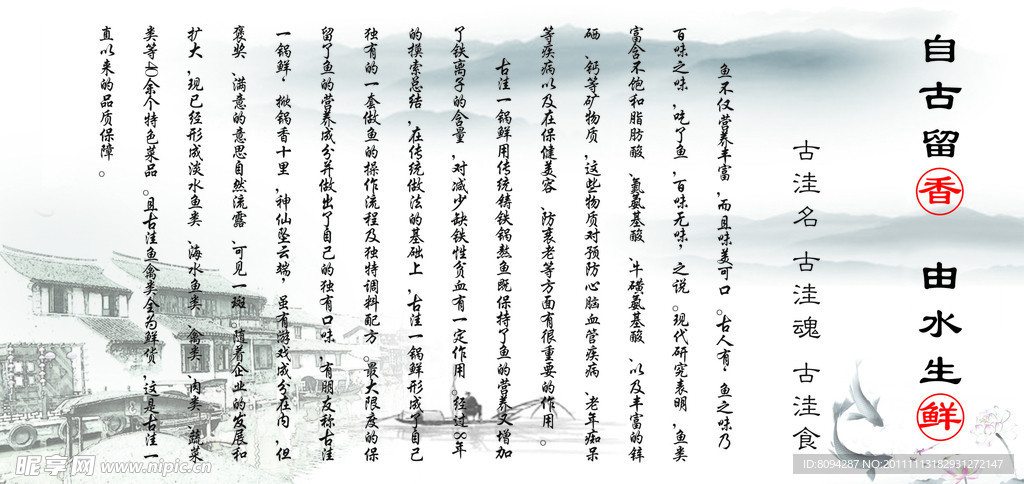 自古留香 由水生鲜
古洼名古洼魂 古洼食
鱼不仅营养丰富,而且味美可口。古人有,鱼之味乃
百味之味,吃了鱼,百味无味,之说。现代研究表明,鱼类
富含不饱和脂肪酸、氨氨基酸、牛磺氨基酸、以及丰富的锌
硒、钙等矿物质,这些物质对预防心脑血管疾病、老年痴呆
等疾病以及在保健美容、防衰老等方面有很重要的作用。
古洼一锅鲜用传统铸铁锅熬鱼既保持了鱼的营养又增加
了铁离子的含量,对减少缺铁性贫血有一定作用。经过8年
的摸索总结,在传统做法的基础上,古洼一锅鲜形成了自己
独有的一套做鱼的操作流程及独特调料配方。最大限度的保
留了鱼的营养成分并做出了自己的独有口味,有朋友称古洼
一锅鲜,掀锅香十里,神仙坠云端,虽有游戏成分在内,但
褒奖、满意的意思自然流露、可见一斑。随着企业的发展和
扩大,现已经形成淡水鱼类、海水鱼类、禽类、肉类、蔬菜
类等40余个特色菜品。且古洼鱼禽类全为鲜货,这是古洼一
直以来的品质保障。
昵享网 www.nipic.cn
ID:8094287 NO:20111113182931272147